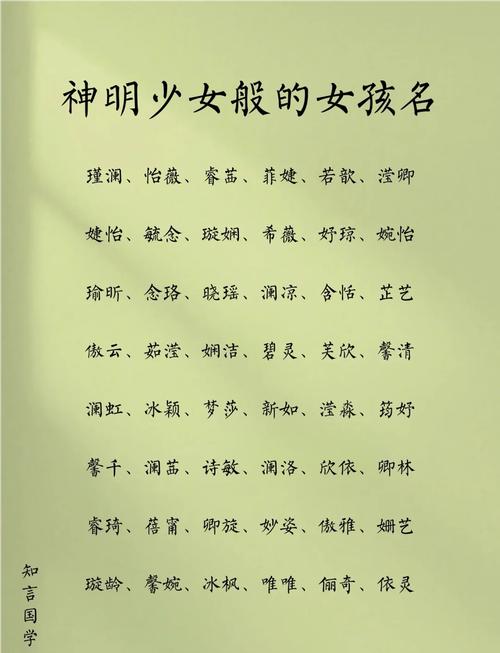 神明少女般的女孩名
瑾澜、怡薇、睿茁、菲婕、若歆、滢卿
婕怡、毓念、璇娴、希薇、妤琼、婉怡
瑜昕、念珞、晓瑶、澜凉、含恬、芷艺
傲云、茹滢、娴洁、碧灵、芙欣、馨清
澜虹、冰颖、梦莎、新如、滢淼、筠妤
馨千、澜茁、诗敏、澜洛、欣依、卿林
睿琦、蓓甯、卿旋、妙姿、傲雅、姗艺
璇龄、馨婉、冰枫、唯唯、俪奇、依灵
知言国学